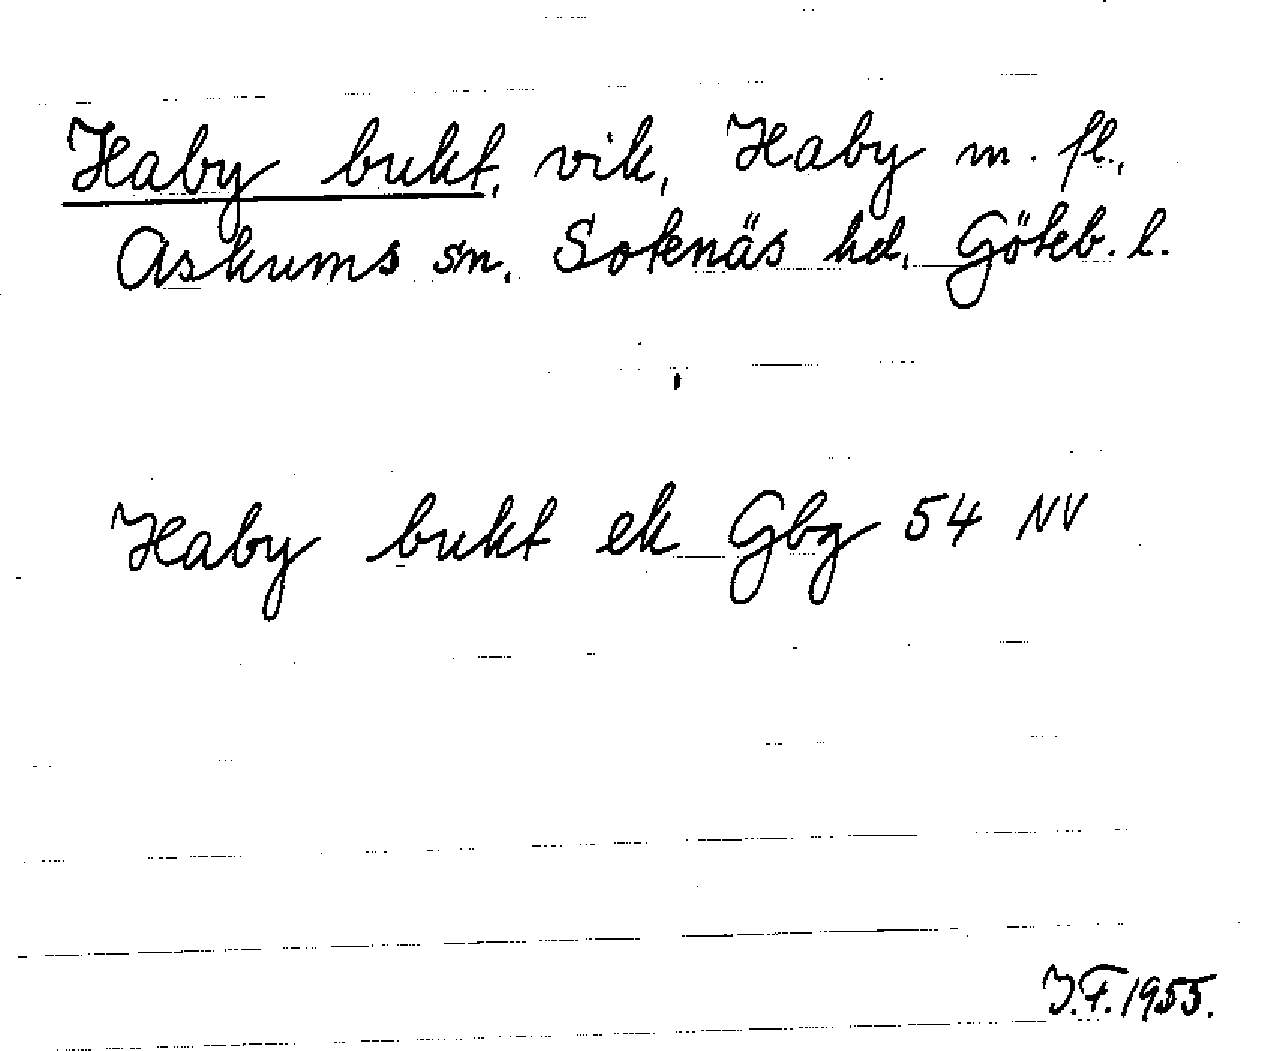 Haby bukt, vik, Haby m. fl.,
Askums sm, Sotenäs hd, Göteb. l.
Haby bukt ek Gbg 54 NV
J.F. 1955.